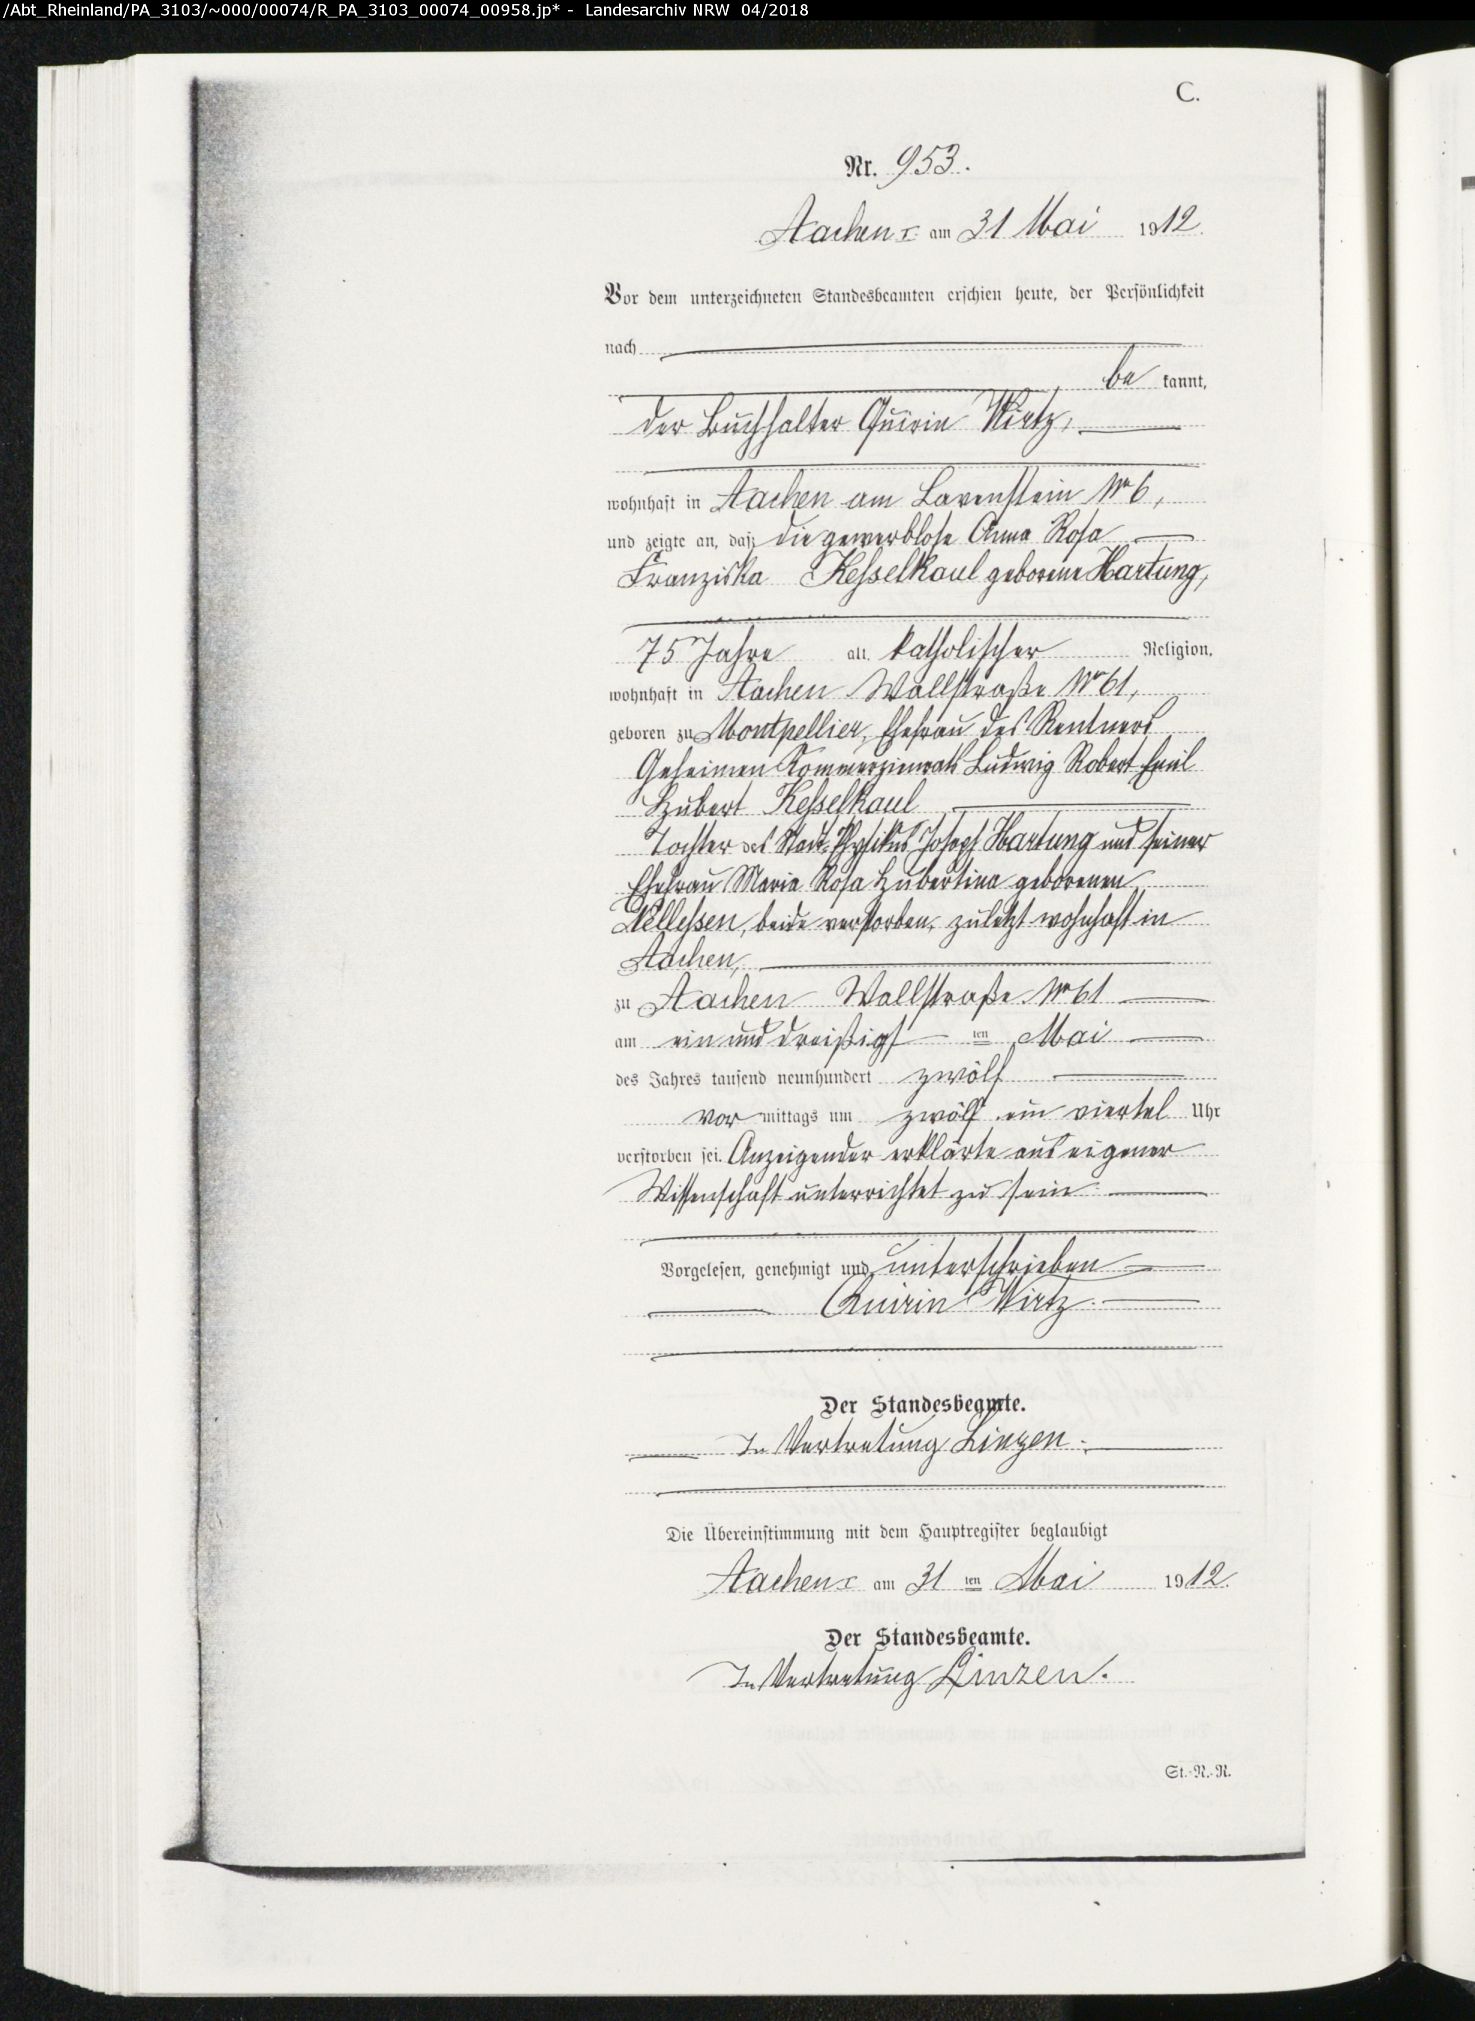 /Abt_Rheinland/PA_3103/~000/00074/R_PA_3103_00074_00958.jp* - Landesarchiv NRW 04/2018
C.
Nr. 953.
Aachen I am 31 Mai 1912.
Vor dem unterzeichneten Standesbeamten erschien heute, der Persönlichkeit
nach
be kannt,
der Buchhalter Quirin Wirtz,
wohnhaft in Aachen am Lavenstein No 6,
und zeigte an, daß die gewerblose Anna Rosa
Franziska Kesselkaul geborene Hartung,
75 Jahre alt, katholischer Religion,
wohnhaft in Aachen Wallstraße No 61,
geboren zu Montpellier, Ehefrau des Rentners
Geheimen Kommerzienrats Ludwig Robert Emil
Hubert Kesselkaul
Tochter des Stadt-Physikus Joseph Hartung und seiner
Ehefrau Maria Rosa Hubertina geborenen
Nellessen, beide verstorben, zuletzt wohnhaft in
Aachen,
zu Aachen Wallstraße No 61
am ein und dreißigst ten Mai
des Jahres tausend neunhundert zwölf
vor mittags um zwölf ein viertel Uhr
verstorben sei. Anzeigender erklärte aus eigener
Wissenschaft unterrichtet zu sein.
Vorgelesen, genehmigt und unterschrieben
Quirin Wirtz.
Der Standesbeamte.
In Vertretung Linzen.
Die Übereinstimmung mit dem Hauptregister beglaubigt
Aachen I am 31 ten Mai 1912.
Der Standesbeamte.
In Vertretung Linzen.
St.-N.-R.